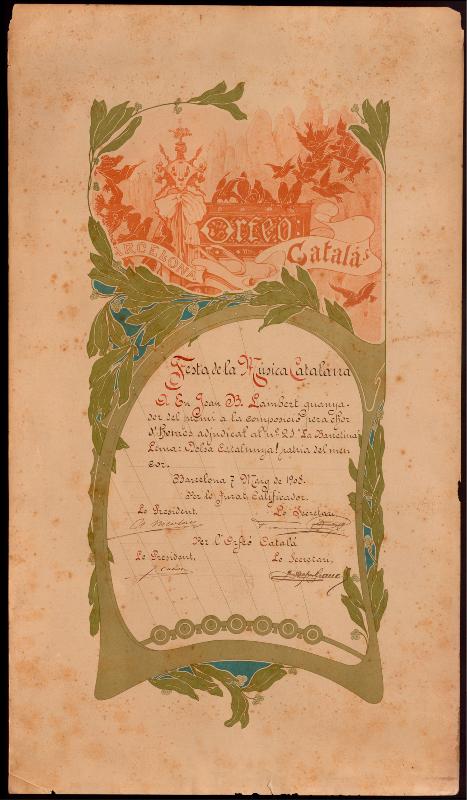 BARCELONA
Orfeó
Català
Festa de la Música Catalana
A En Joan B. Lambert guanya-
dor del premi á la composició pera chor
d'homes adjudicat al nº 21
Lema: Dolsa Catalunya! patria del meu
cor.
Barcelona 7 Maig de 1905.
Per lo Jurat Calificador.
Lo President, Lo Secretari,
Per l'Orfeó Catalá
Lo President, Lo Secretari,
J. Cabot